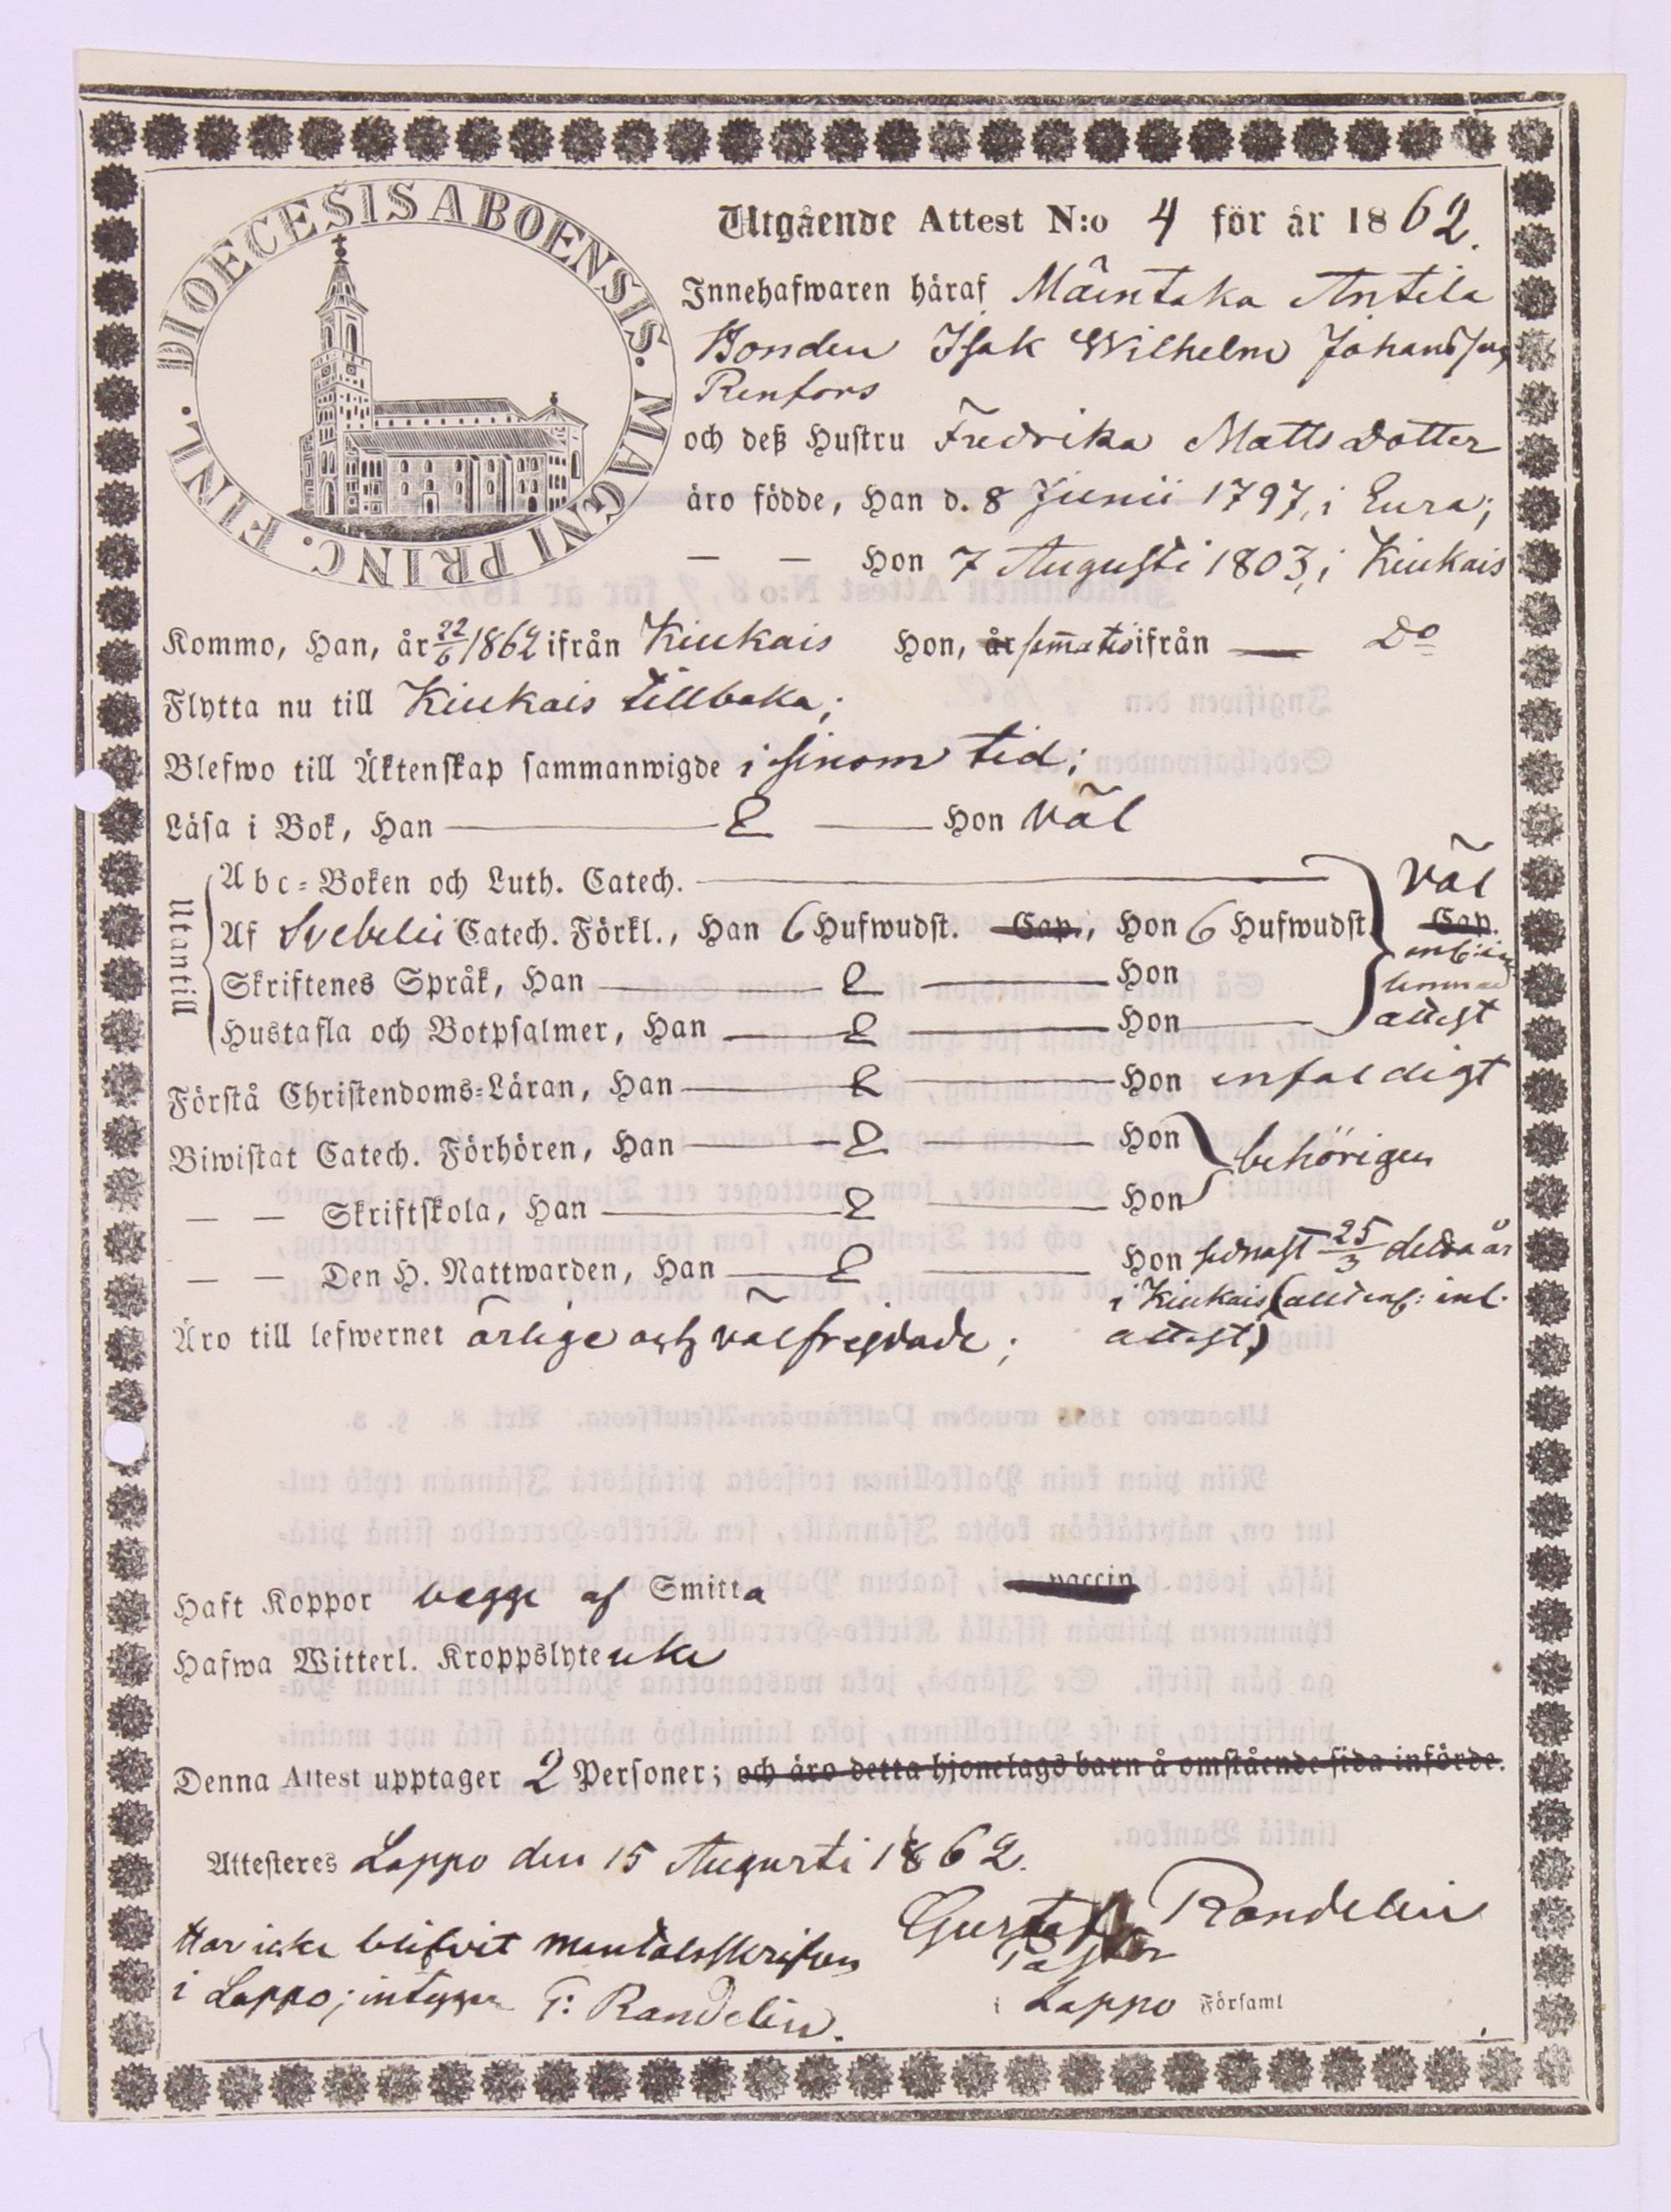 DIOECESIS ABOENSIS. MAGNI PRINC. FINL.
Utgående Attest N:o 4 för år 1862.
Innehafwaren häraf Mäentaka Antila
Bonden Isak Wilhelm Johansson
Renfors
och deß Hustru Fredrika Matts dotter
äro födde, Han d. 8 Junii 1797, i Eura;
— — Hon 7 Augusti 1803, i Kiukais
Kommo, Han, år 22/6 1862 ifrån Kiukais Hon, år samma tid ifrån — Do
Flytta nu till Kiukais tillbaka;
Blefwo till Äktenskap sammanwigde i sinom tid;
Läsa i Bok, Han — — Hon väl
Utantill
Abc-Boken och Luth. Catech. — väl
Af Svebelii Catech. Förkl., Han 6 Hufwudst. Cap., Hon 6 Hufwudst. Cap.
Skriftenes Språk, Han — — Hon
Hustafla och Botpsalmer, Han — — Hon — attest
Förstå Christendoms-Läran, Han — — Hon enfaldigt
Biwistat Catech. Förhören, Han — — Hon behörigen
— — Skriftskola, Han — — Hon
— — Den H. Nattwarden, Han — — Hon senast 25/3 detta år
i Kiukais (allt enl. ink.
attest)
Äro till lefwernet ärlige och välfrejdade;
Haft Koppor begge af Smitta vaccin
Hafwa Witterl. Kroppslyte icke
Denna Attest upptager 2 Personer; och äro detta hjonelags barn å omstående sida införde.
Attesteres Lappo den 15 Augusti 1862.
Gustaf Randelin
Pastor
i Lappo Församl
Har icke blifvit mantalsskrifven
i Lappo; intygar G: Randelin.